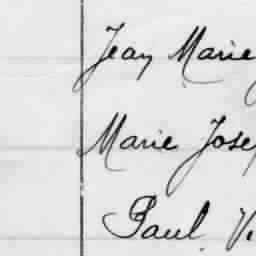 Jean Marie
Marie Jose
Paul V.